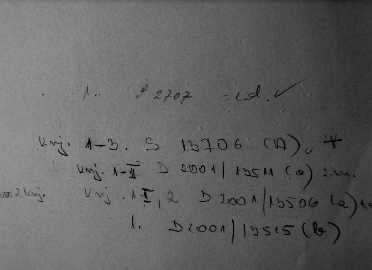 1. P 2707 =zd. ✓
Knj. 1-3. S 13706 (A), *
Knj. 1-II D 2001/13511 (a) 2.
2 knj. Knj. 1-I, 2 D 2001/13506 (a) 1.
1. D 2001/13515 (b)